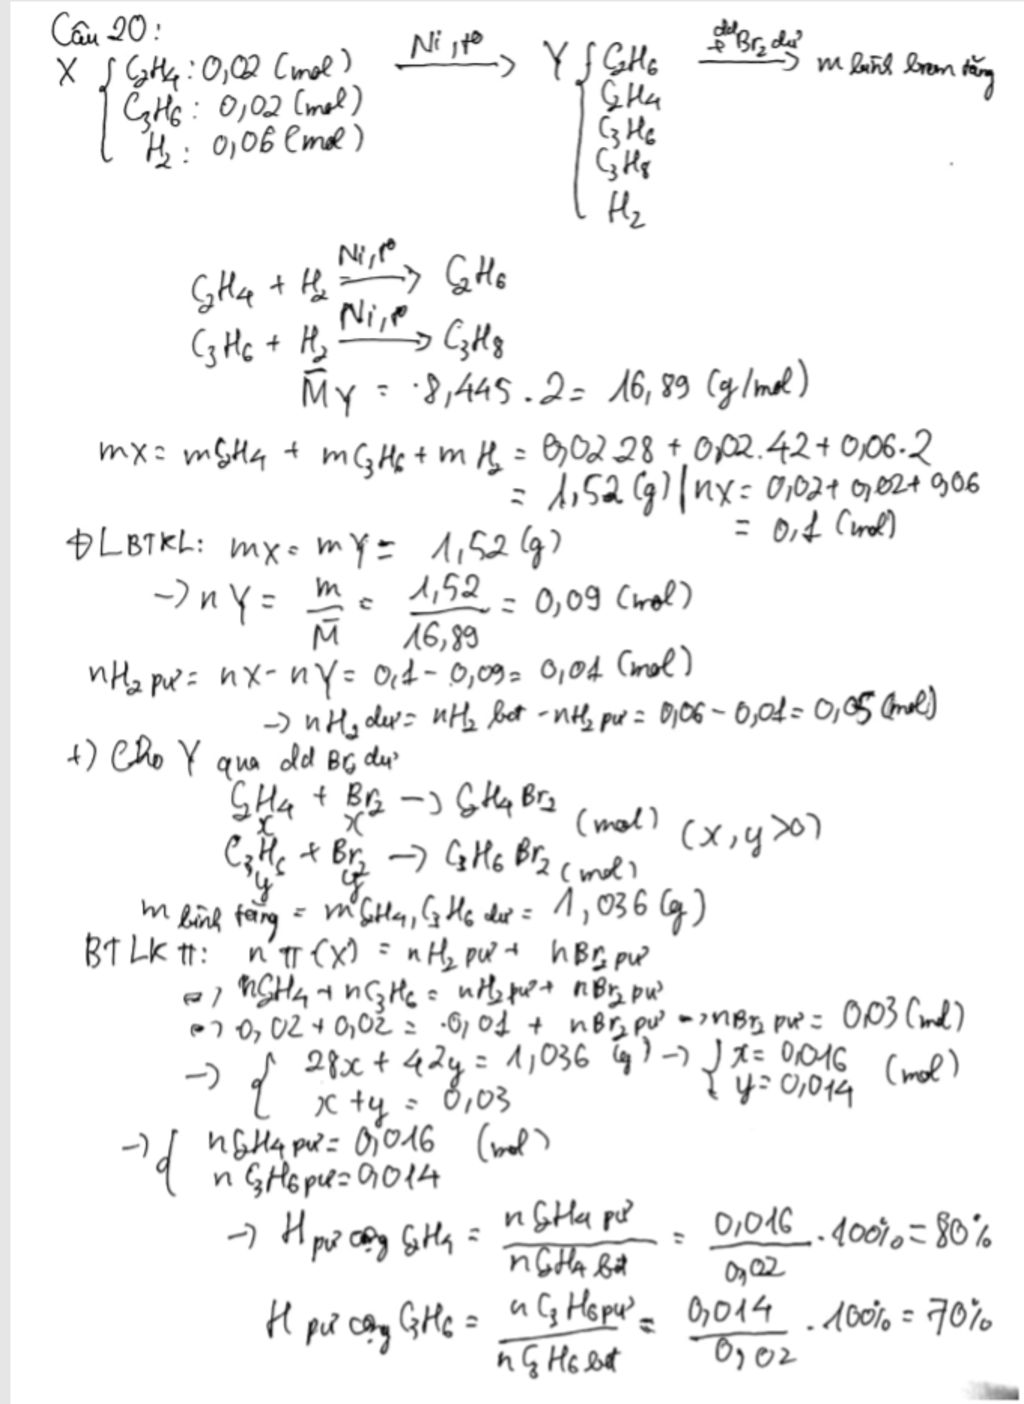 Câu 20:
X { C2H4: 0,02 (mol) Ni, t° → Y { C2H6 dd Br2 dư → m bình brom tăng
C3H6: 0,02 (mol) C2H4
H2: 0,06 (mol) C3H6
C3H8
H2
C2H4 + H2 Ni, t° → C2H6
C3H6 + H2 Ni, t° → C3H8
M̄Y = 8,445 . 2 = 16,89 (g/mol)
mX = mC2H4 + mC3H6 + mH2 = 0,02.28 + 0,02.42 + 0,06.2
= 1,52 (g) | nX = 0,02 + 0,02 + 0,06
= 0,1 (mol)
ĐLBTKL: mX = mY = 1,52 (g)
→ nY = m/M̄ = 1,52/16,89 = 0,09 (mol)
nH2 pứ = nX - nY = 0,1 - 0,09 = 0,01 (mol)
→ nH2 dư = nH2 bđ - nH2 pứ = 0,06 - 0,01 = 0,05 (mol)
+) Cho Y qua dd Br2 dư
C2H4 + Br2 → C2H4Br2
x x (mol) (x, y > 0)
C3H6 + Br2 → C3H6Br2
y y (mol)
m bình tăng = mC2H4, C3H6 dư = 1,036 (g)
BTLK π: nπ(X) = nH2 pứ + nBr2 pứ
⇔ nC2H4 + nC3H6 = nH2 pứ + nBr2 pứ
⇔ 0,02 + 0,02 = 0,01 + nBr2 pứ → nBr2 pứ = 0,03 (mol)
→ { 28x + 42y = 1,036 (g) → { x = 0,016
x + y = 0,03 y = 0,014 (mol)
→ { nC2H4 pứ = 0,016 (mol)
nC3H6 pứ = 0,014
→ H pứ cộng C2H4 = nC2H4 pứ/nC2H4 bđ = 0,016/0,02 . 100% = 80%
H pứ cộng C3H6 = nC3H6 pứ/nC3H6 bđ = 0,014/0,02 . 100% = 70%